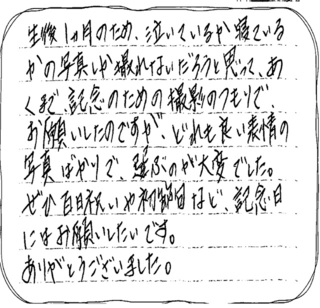 生後1ヶ月のため、泣いているか寝ている
かの写真しか撮れないだろうと思って、あ
くまで、記念のための撮影のつもりで、
お願いしたのですが、どれも良い表情の
写真ばかりで、選ぶのが大変でした。
ぜひ百日祝いや初節句など、記念日
にはお願いしたいです。
ありがとうございました。